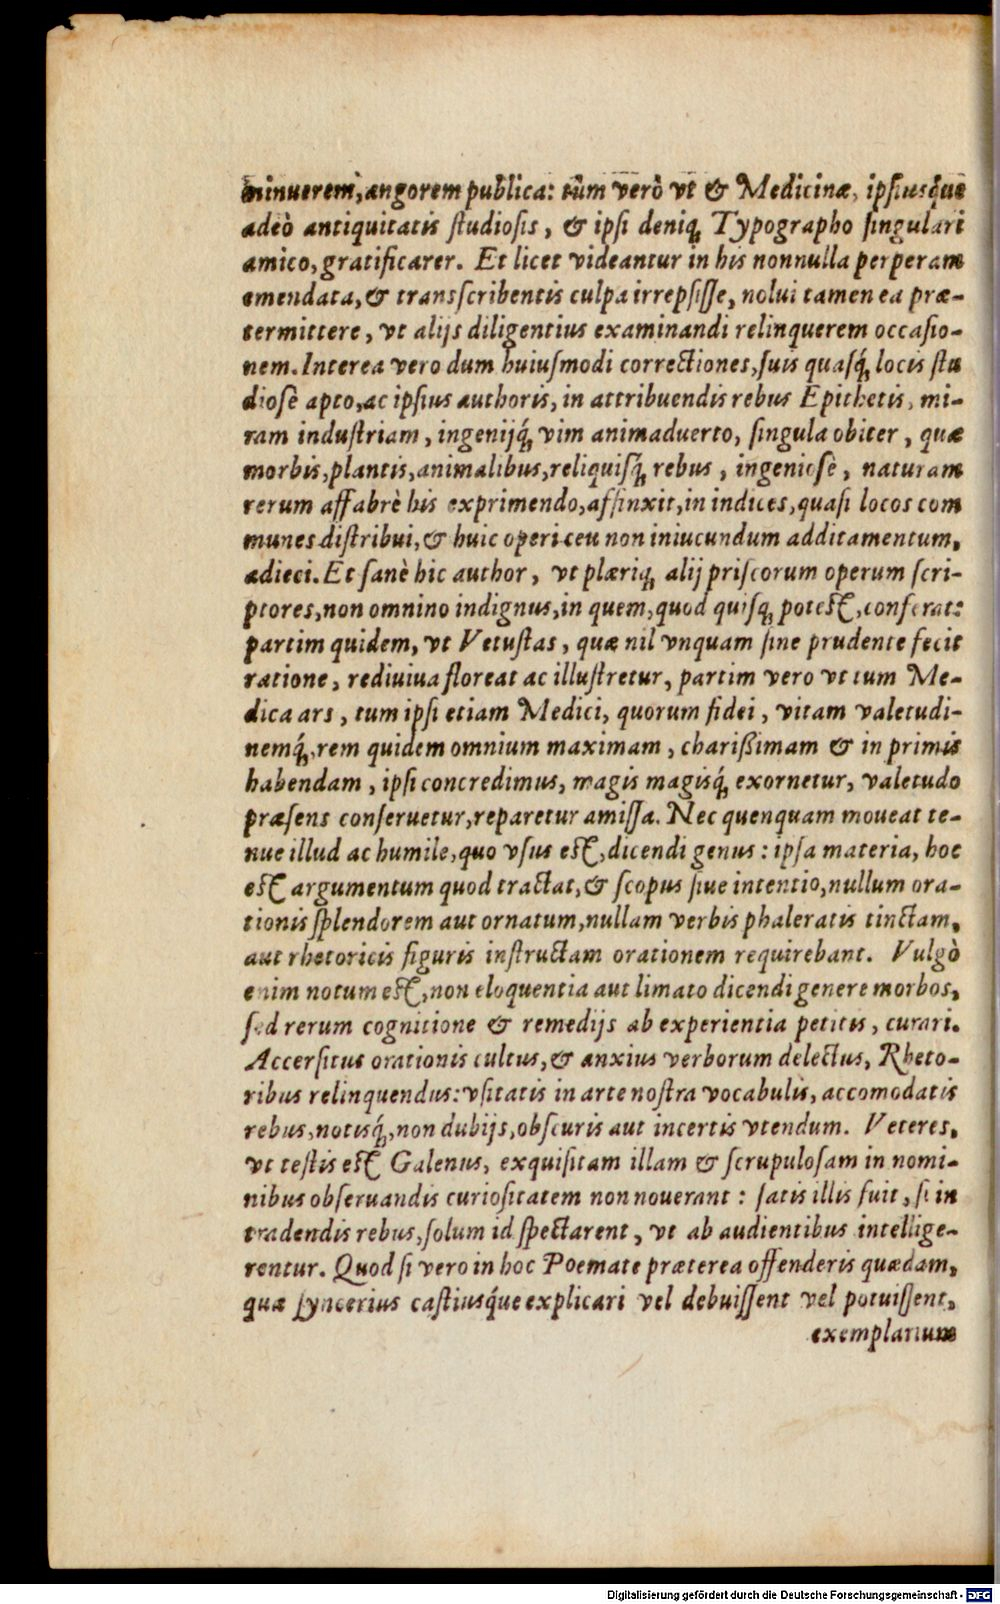 minuerem, angorem publica: tùm verò vt & Medicinæ, ipsiusq́ue
adeò antiquitatis studiosis, & ipsi deniq; Typographo singulari
amico, gratificarer. Et licet videantur in his nonnulla perperam
emendata, & transscribentis culpa irrepsisse, nolui tamen ea præ-
termittere, vt alijs diligentius examinandi relinquerem occasio-
nem. Interea vero dum huiusmodi correctiones, suis quasq́; locis stu
diosè apto, ac ipsius authoris, in attribuendis rebus Epithetis, mi-
ram industriam, ingenijq́; vim animaduerto, singula obiter, quæ
morbis, plantis, animalibus, reliquisq́; rebus, ingeniosè, naturam
rerum affabrè his exprimendo, affinxit, in indices, quasi locos com
munes distribui, & huic operi ceu non iniucundum additamentum,
adieci. Et sanè hic author, vt plæriq; alij priscorum operum scri-
ptores, non omnino indignus, in quem, quod quisq; potest, conferat:
partim quidem, vt Vetustas, quæ nil vnquam sine prudente fecit
ratione, rediuiua floreat ac illustretur, partim vero vt tum Me-
dica ars, tum ipsi etiam Medici, quorum fidei, vitam valetudi-
nemq́;, rem quidem omnium maximam, charißimam & in primis
habendam, ipsi concredimus, magis magisq́; exornetur, valetudo
præsens conseruetur, reparetur amissa. Nec quenquam moueat te-
nue illud ac humile, quo vsus est, dicendi genus: ipsa materia, hoc
est argumentum quod tractat, & scopus siue intentio, nullum ora-
tionis splendorem aut ornatum, nullam verbis phaleratis tinctam,
aut rhetoricis figuris instructam orationem requirebant. Vulgò
enim notum est, non eloquentia aut limato dicendi genere morbos,
sed rerum cognitione & remedijs ab experientia petitis, curari.
Accersitus orationis cultus, & anxius verborum delectus, Rheto-
ribus relinquendus: vsitatis in arte nostra vocabulis, accomodatis
rebus, notisq́;, non dubijs, obscuris aut incertis vtendum. Veteres,
vt testis est Galenus, exquisitam illam & scrupulosam in nomi-
nibus obseruandis curiositatem non nouerant: satis illis fuit, si in
tradendis rebus, solum id spectarent, vt ab audientibus intellige-
rentur. Quod si vero in hoc Poemate præterea offenderis quædam,
quæ syncerius castiusq́ue explicari vel debuissent vel potuissent,
exemplarium
Digitalisierung gefördert durch die Deutsche Forschungsgemeinschaft - DFG